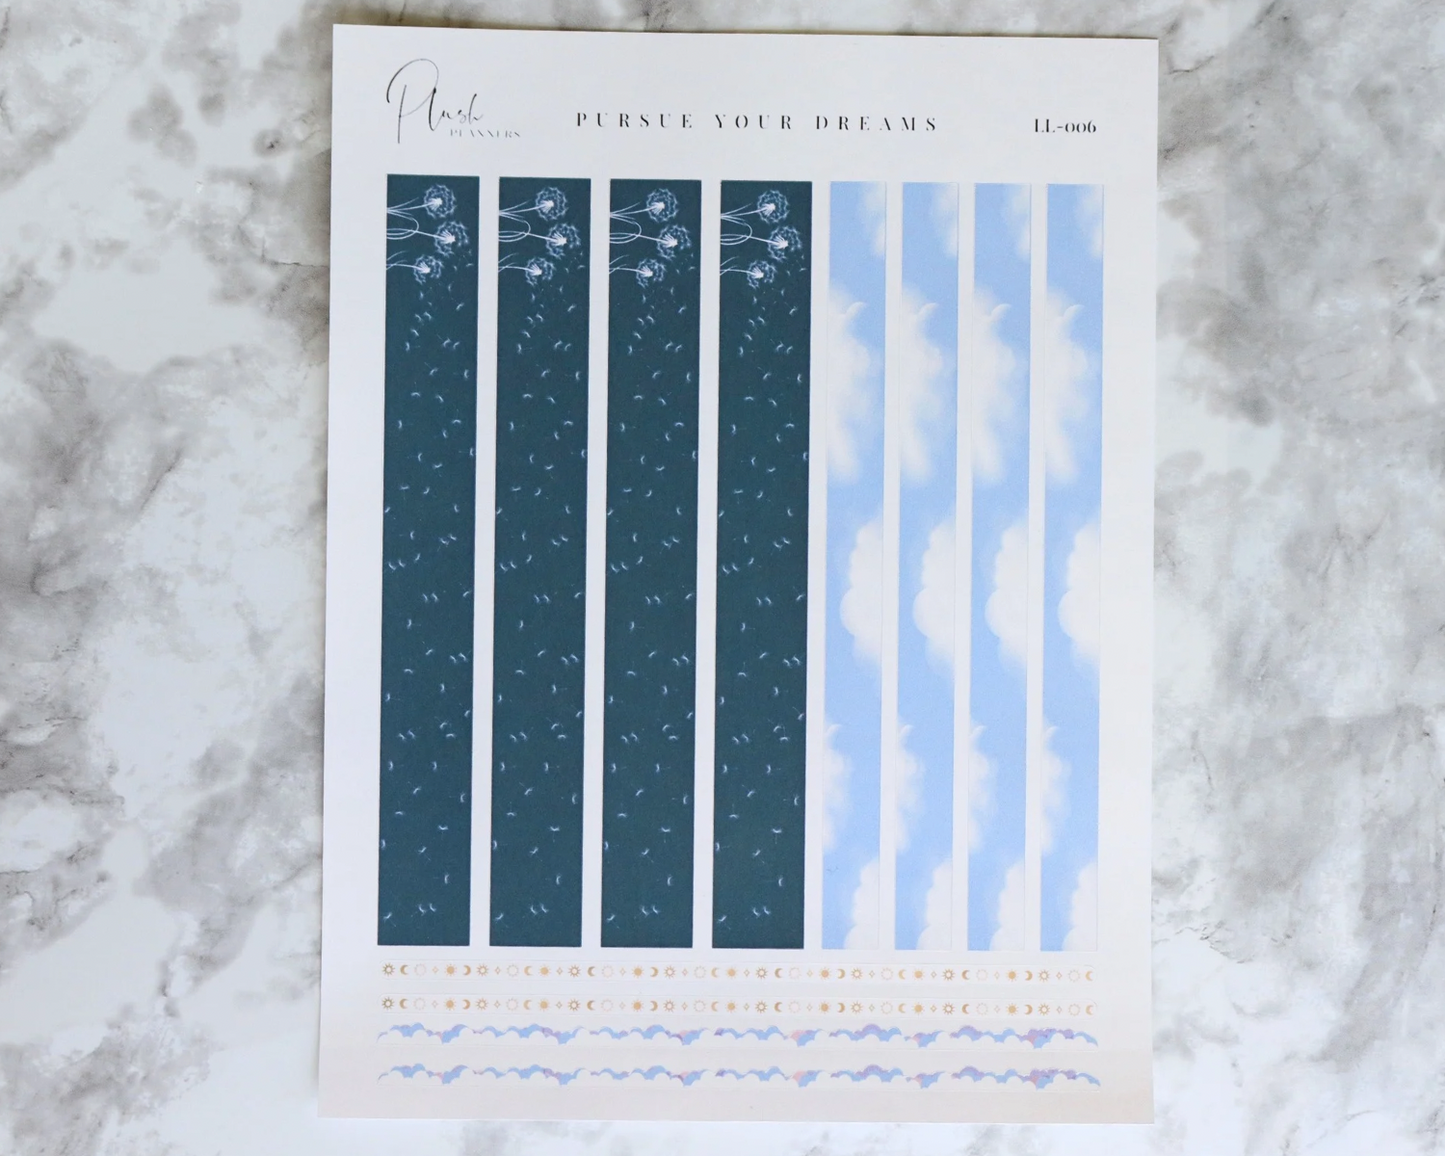 Plush
PLANNERS
PURSUE YOUR DREAMS
LL-006